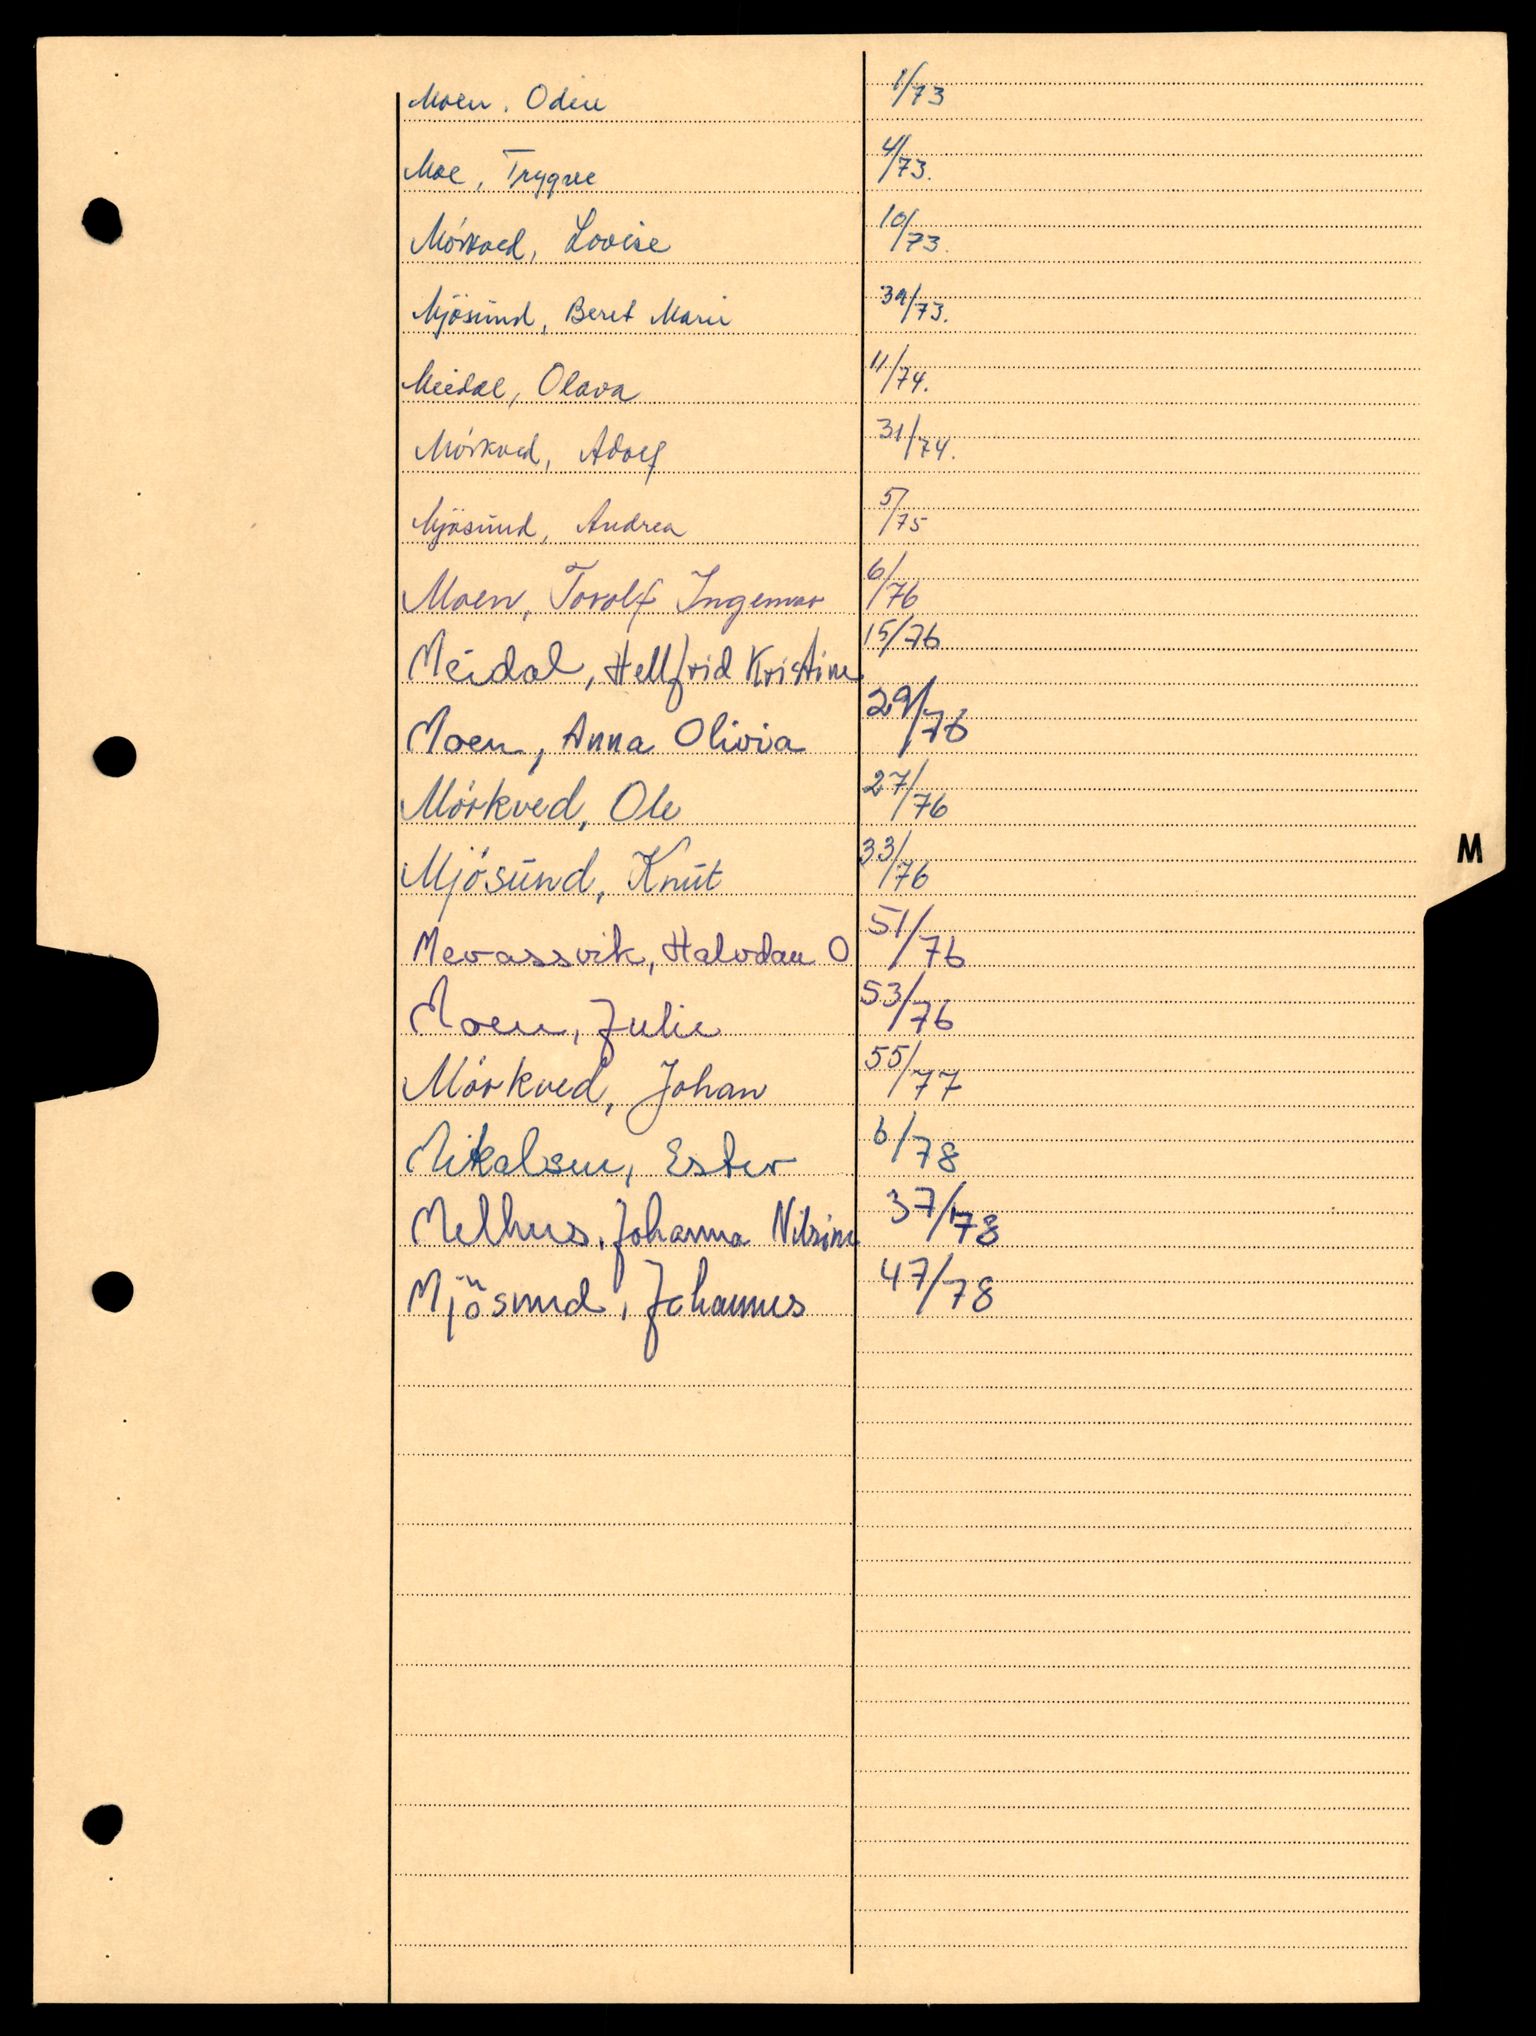 Moen, Odin 1/73
Moe, Trygve 4/73.
Mörkved, Lovise 10/73.
Mjösund, Beret Marie 39/73.
Meidal, Olava 11/74.
Mörkved, Adolf 31/74.
Mjösund, Andrea 5/75
Moen, Torolf Ingemar 6/76
Meidal, Hellfrid Kristine 15/76
Moen, Anna Olivia 29/76
Mörkved, Ole 27/76
Mjösund, Knut 33/76
M
Mevassvik, Halvdan O 51/76
Moen, Julie 53/76
Mörkved, Johan 55/77
Mikalsen, Ester 6/78
Melhus, Johanna Nilsine 37/78
Mjösund, Johannes 47/78